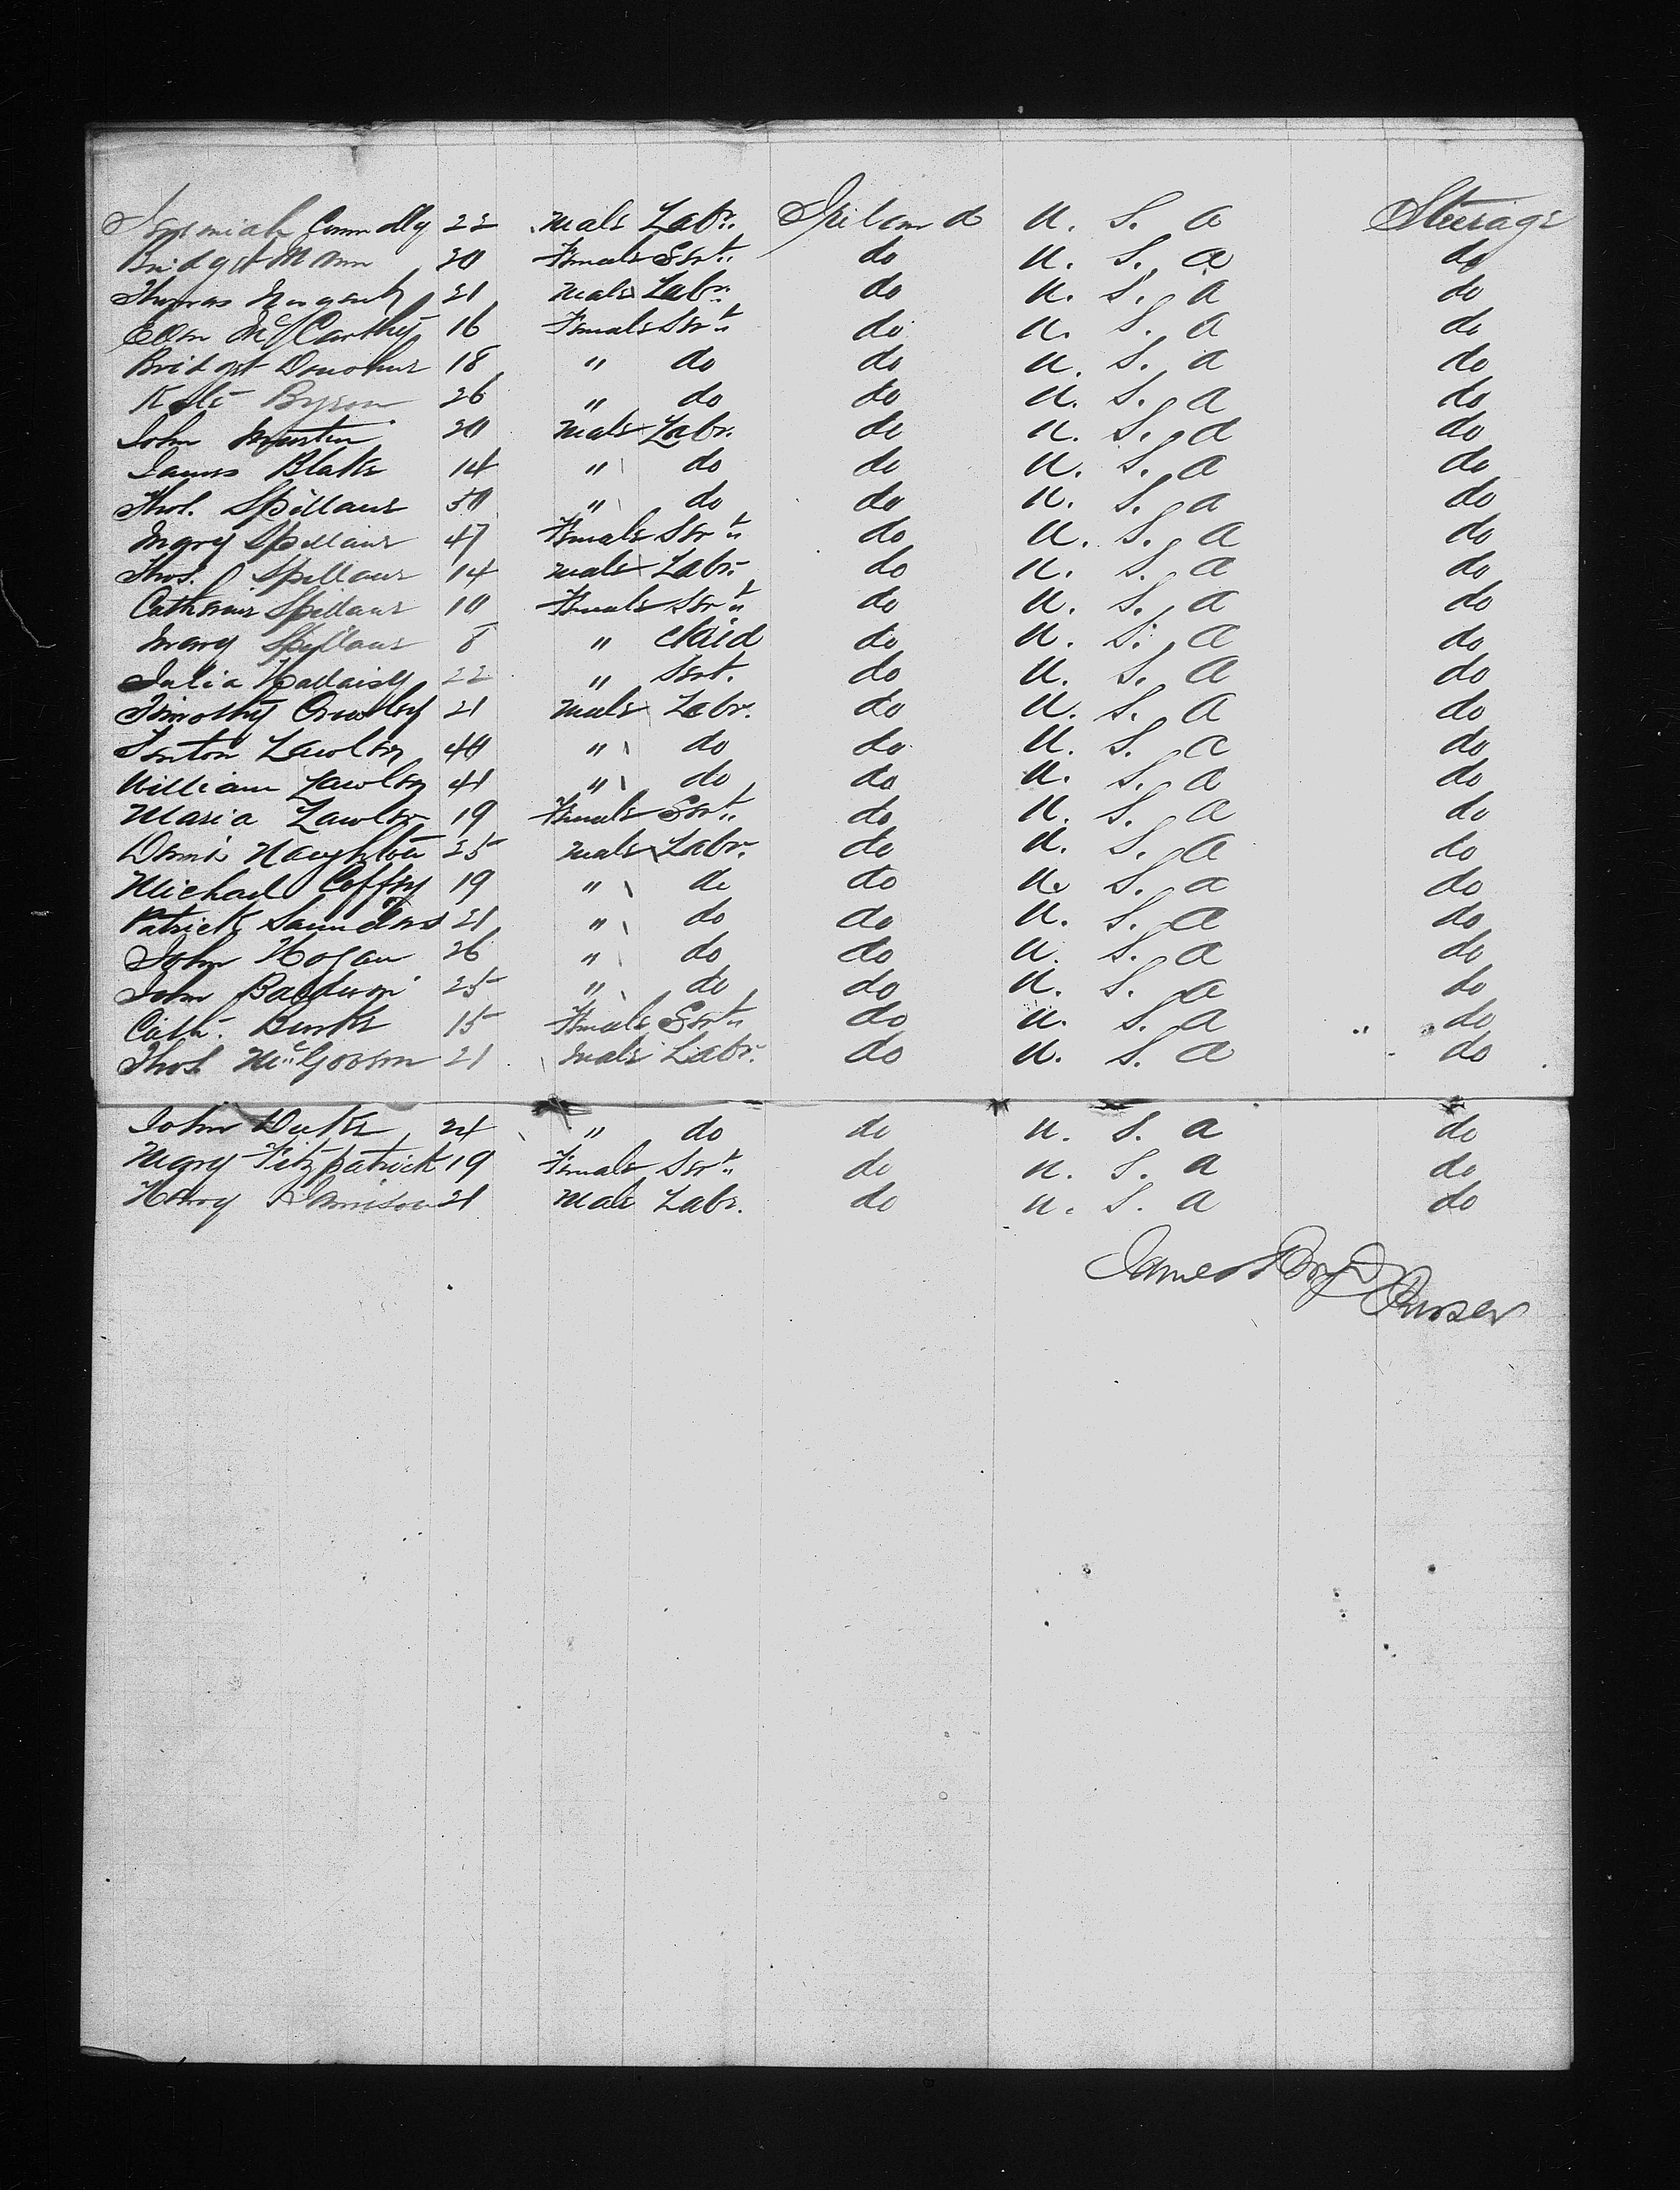 Jeremiah Connolly 22 Male Labr. Ireland U. S. A Steerage
Bridget Mann 20 Female Servt. do U. S. A do
Thomas Nugent 21 Male Labr. do U. S. A do
Ellen McCarthy 16 Female Servt do U. S. A do
Bridget Donohue 18 " do do U. S. A do
Kate 26 " do do U. S. A do
John Martin 20 Male Labr. do U. S. A do
James Blake 14 " do do U. S. A do
Thos. Spillane 50 " do do U. S. A do
Mary Spillane 47 Female Servt do U. S. A do
Thos. Spillane 14 Male Labr. do U. S. A do
Catherine Spillane 10 Female Servt do U. S. A do
Mary Spillane 8 " Child do U. S. A do
Julia 22 " Servt. do U. S. A do
Timothy Crowley 21 Male Labr. do U. S. A do
Fenton Lawler 40 " do do U. S. A do
William Lawler 41 " do do U. S. A do
Maria Lawler 19 Female Servt. do U. S. A do
Denis Naughton 25 Male Labr. do U. S. A do
Michael Coffey 19 " do do U. S. A do
Patrick Saunders 21 " do do U. S. A do
John Hogan 26 " do do U. S. A do
John Baldwin 25 " do do U. S. A do
Cath. Burke 15 Female Servt do U. S. A " " do
Thos. McGovern 21 Male Labr. do U. S. A do
John 24 " do do U. S. A do
Mary Fitzpatrick 19 Female Servt. do U. S. A do
21 Male Labr. do U. S. A do
James Boyd
Purser